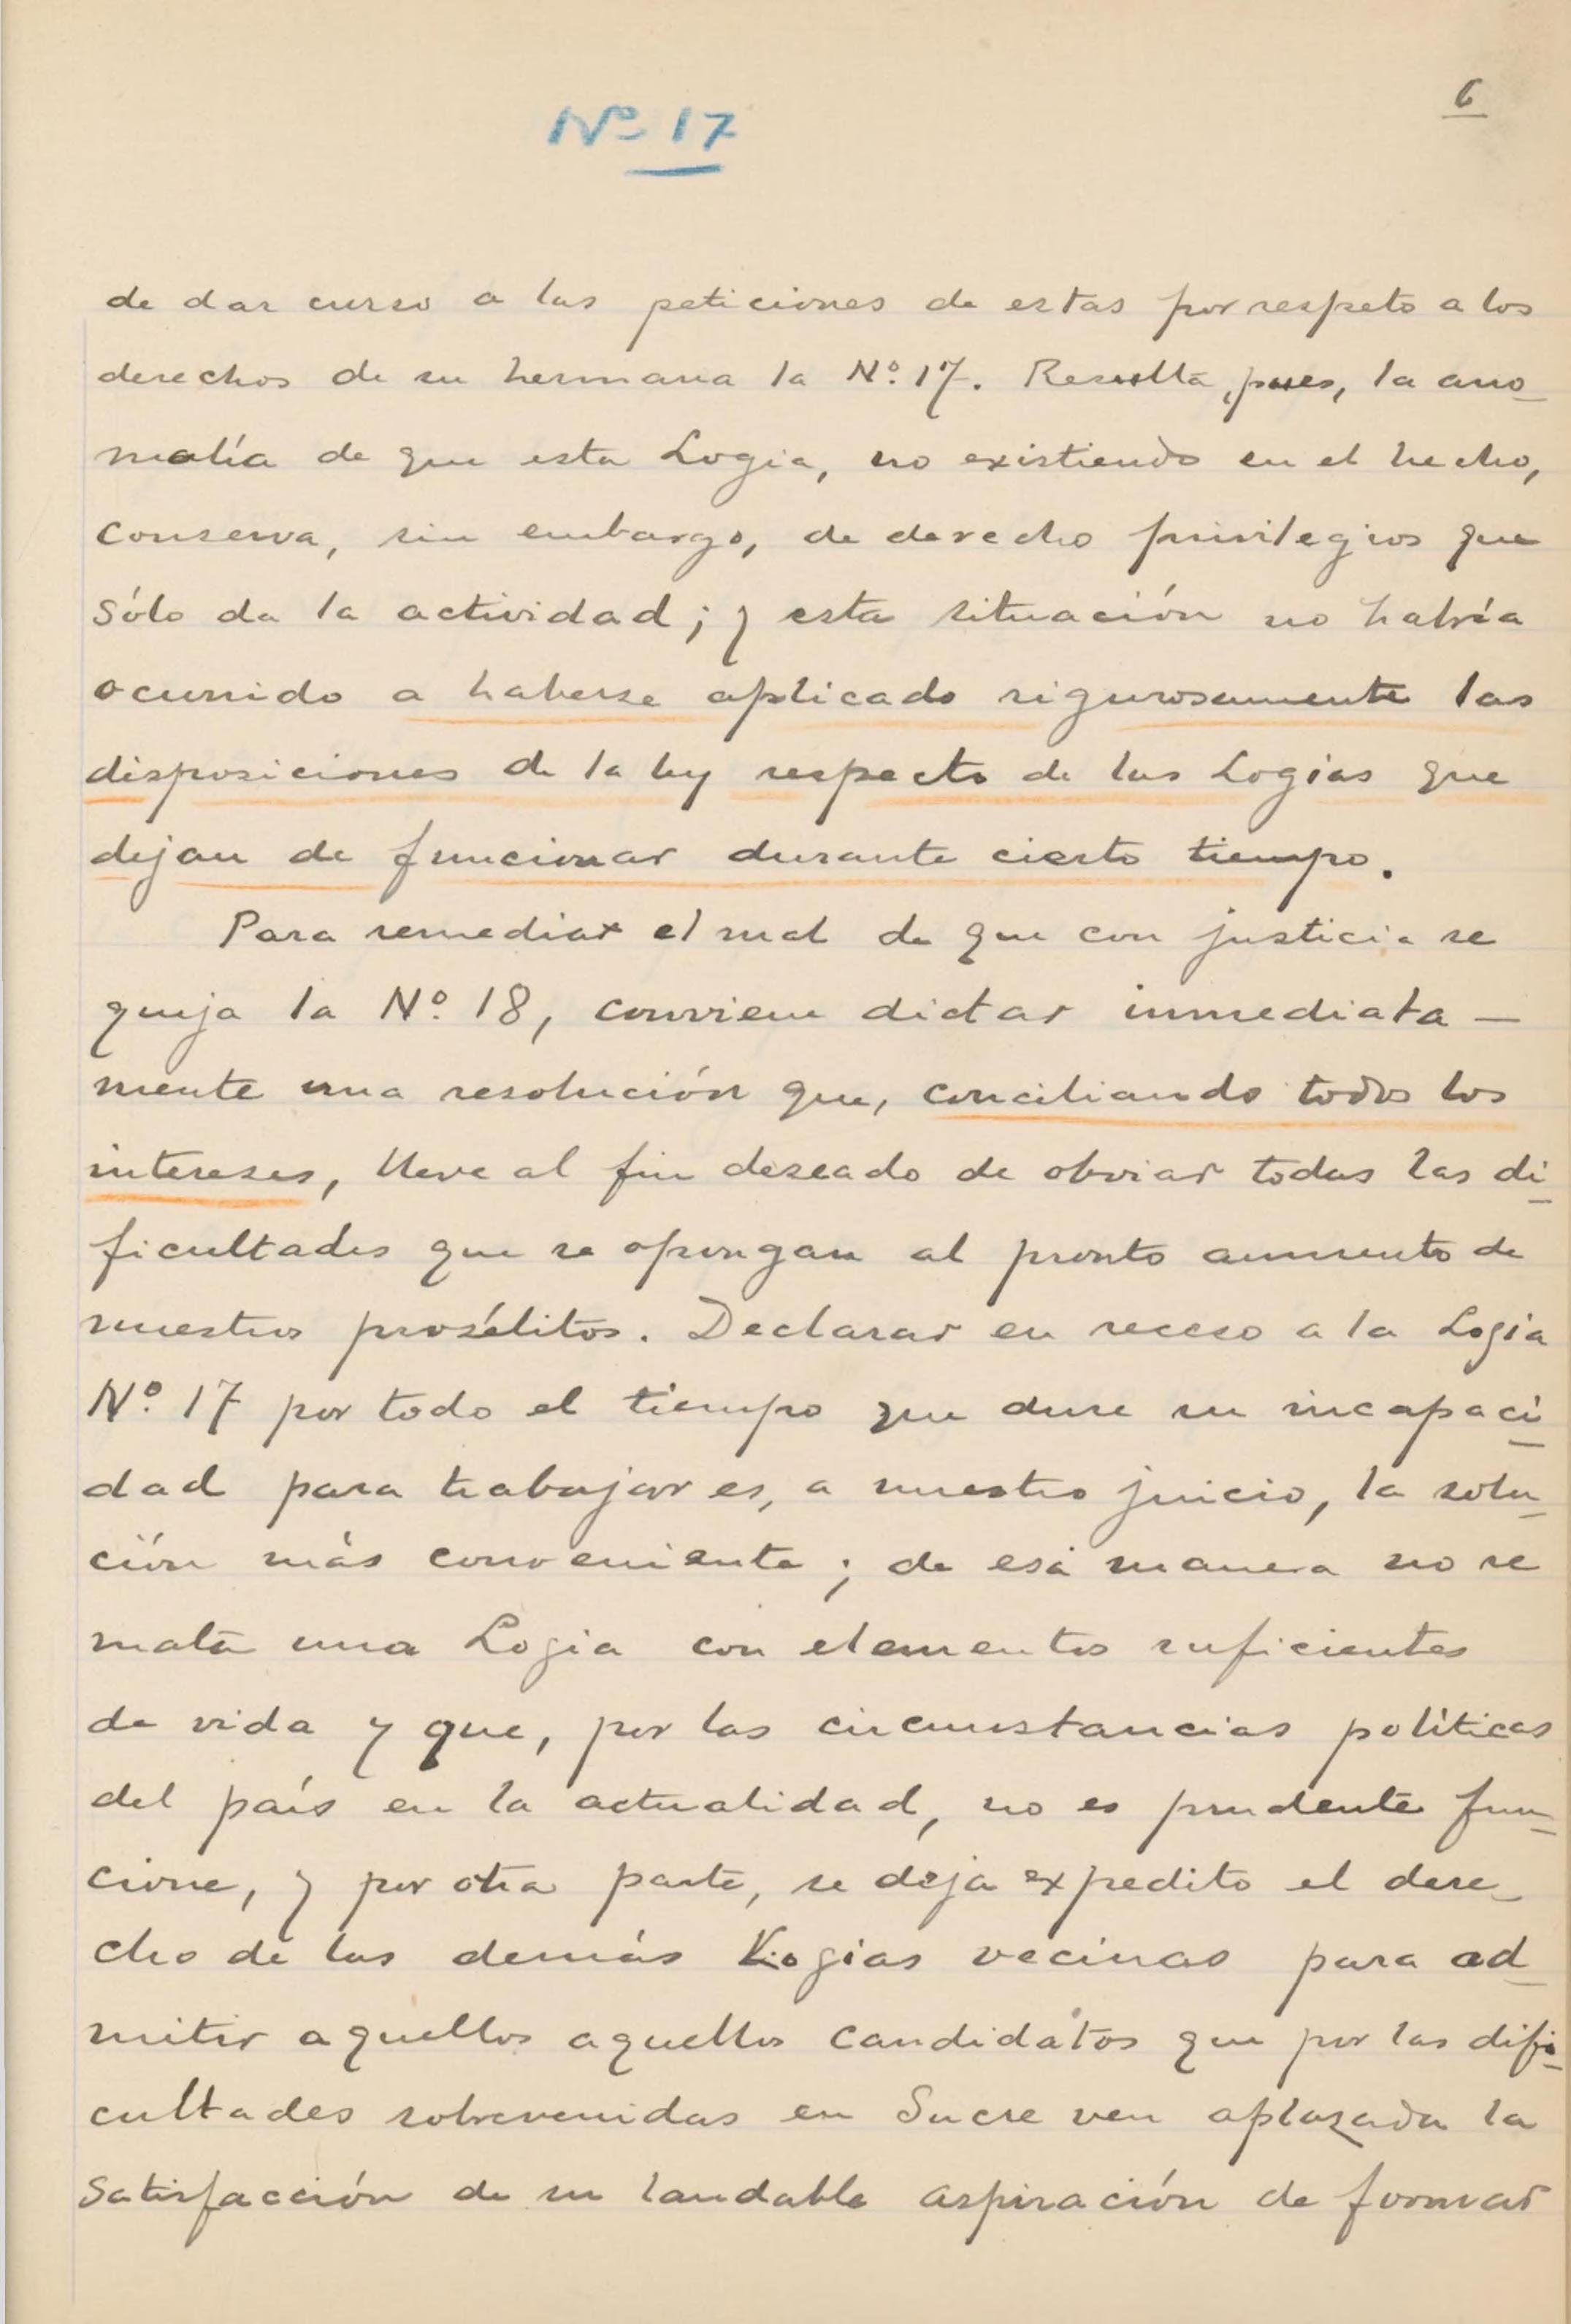 6
Nº 17
de dar curso a las peticiones de estas por respeto a los
derechos de su hermana la Nº. 17. Resulta, pues, la ano-
malía de que esta Logia, no existiendo en el hecho,
conserva, sin embargo, de derecho privilegios que
sólo da la actividad; y esta situación no habría
ocurrido a haberse aplicado rigurosamente las
disposiciones de la ley respecto de las Logias que
dejan de funcionar durante cierto tiempo.
Para remediar el mal de que con justicia se
queja la Nº. 18, conviene dictar inmediata-
mente una resolución que, conciliando todos los
intereses, lleve al fin deseado de obviar todas las di-
ficultades que se opongan al pronto aumento de
nuestros prosélitos. Declarar en receso a la Logia
Nº. 17 por todo el tiempo que dure su incapaci-
dad para trabajar es, a nuestro juicio, la solu-
ción más conveniente; de esa manera no se
mata una Logia con elementos suficientes
de vida y que, por las circunstancias políticas
del país en la actualidad, no es prudente fun-
cione, y por otra parte, se deja expedito el dere-
cho de las demás Logias vecinas para ad-
mitir aquellos aquellos candidatos que por las difi-
cultades sobrevenidas en Sucre ven aplazada la
satisfacción de su laudable aspiración de formar